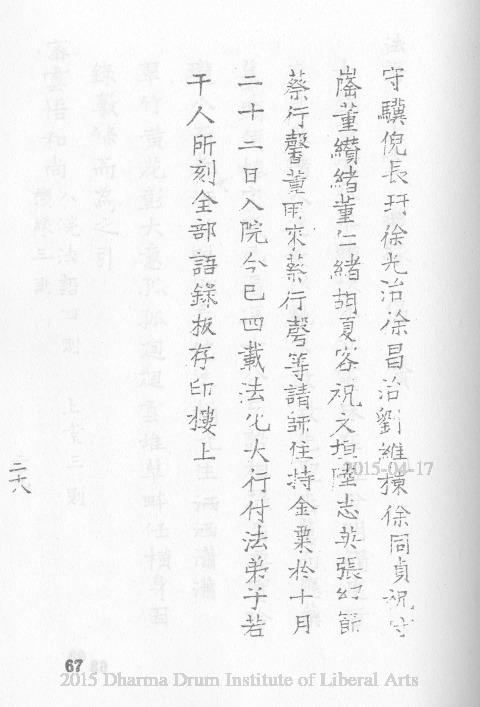 守驥倪長玗徐光治徐昌治劉維棟徐同貞祝守
崙董纘緒董仁緒胡夏容祝文垣陸志英張幻餙
蔡行馨董用來蔡行謦等請師住持金粟於十月
二十二日入院今已四載法化大行付法弟子若
干人所刻全部語錄板存印樓上
二十八
67
2015-04-17
2015 Dharma Drum Institute of Liberal Arts